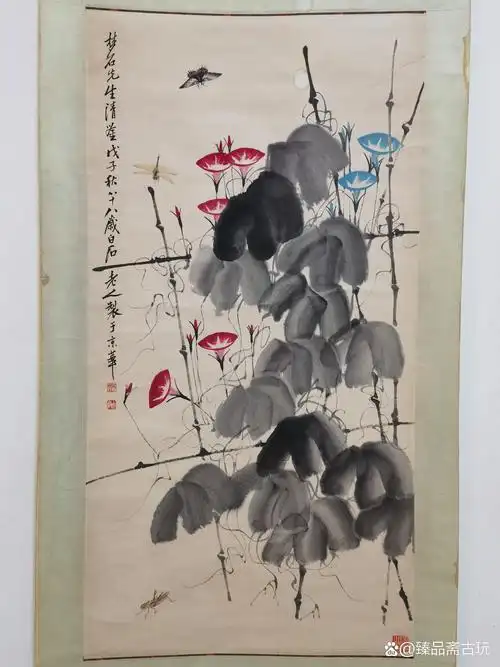 梦石先生清鉴戊子秋八十八岁白石老人製于京華
臻品斋古玩